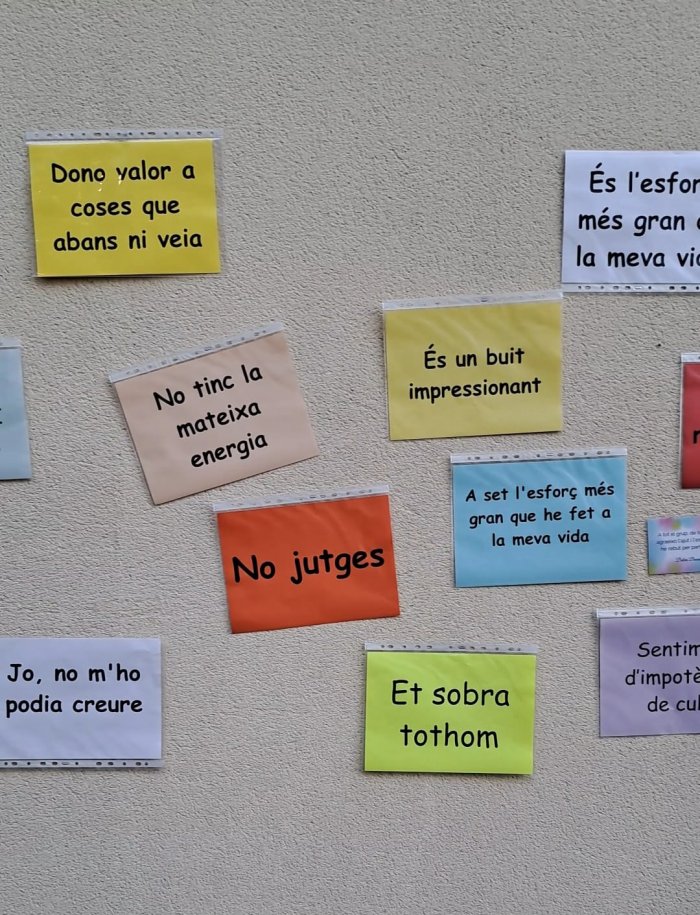 Dono valor a
coses que
abans ni veia
És l'esfor
més gran
la meva
No tinc la
mateixa
energia
És un buit
impressionant
A set l'esforç més
gran que he fet a
la meva vida
No jutges
Jo, no m'ho
podia creure
Et sobra
tothom
Sentim
d'impotè
de cul